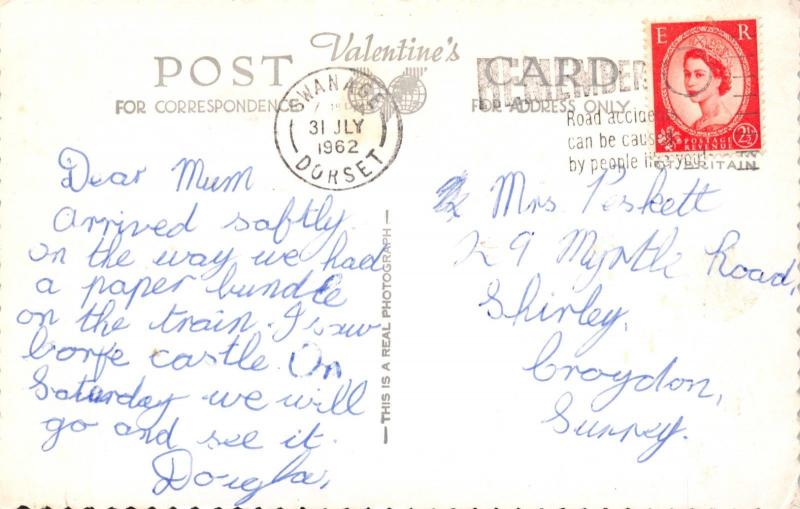 Valentine's
POST CARD
FOR CORRESPONDENCE
FOR ADDRESS ONLY
SWANAGE
31 JLY
1962
DORSET
REMEMBER
Road accide
can be caus
by people like you!
E R
POSTAGE
REVENUE
2½
BRITAIN
Dear Mum
Arrived saftly
on the way we had
a paper bundle
on the train. I saw
Corfe castle. On
Saturday we will
go and see it.
Douglas,
— THIS IS A REAL PHOTOGRAPH —
Mrs Peskett
29 Myrtle Road,
Shirley,
Croydon,
Surrey.